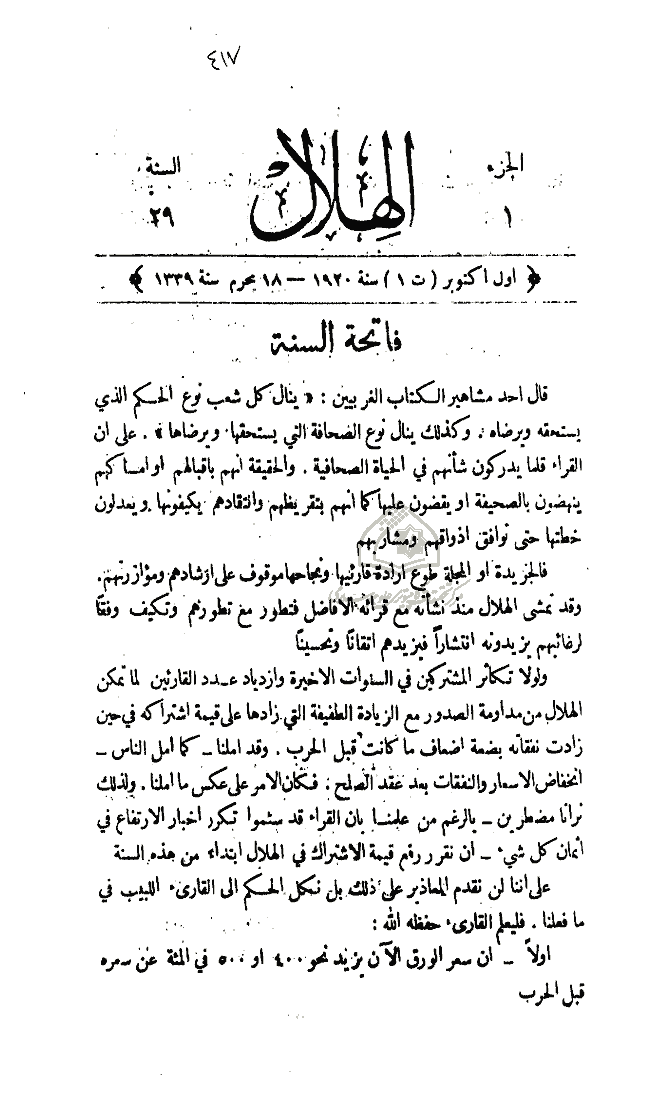 ٤١٧
الجزء
١
الهلال
السنة
٢٩
﴿ اول اكتوبر ( ت ١ ) سنة ١٩٢٠ — ١٨ محرم سنة ١٣٣٩ ﴾
فاتحة السنة
قال احد مشاهير الكتاب الغربيين : « ينال كل شعب نوع الحكم الذي
يستحقه ويرضاه . وكذلك ينال نوع الصحافة التي يستحقها ويرضاها » . على ان
القراء قلما يدركون شأنهم في الحياة الصحافية . والحقيقة انهم باقبالهم او امساكهم
ينهضون بالصحيفة او يقضون عليها كما انهم بتقريظهم وانتقادهم يكيفونها ويعدلون
خطتها حتى توافق اذواقهم ومشاربهم
فالجريدة او المجلة طوع ارادة قارئيها ونجاحها موقوف على ارشادهم ومؤازرتهم .
وقد تمشى الهلال منذ نشأته مع قرائه الافاضل فتطور مع تطورهم وتكيف وفقًا
لرغائبهم يزيدونه انتشاراً فيزيدهم اتقانًا وتحسينًا
ولولا تكاثر المشتركين في السنوات الاخيرة وازدياد عدد القارئين لما تمكن
الهلال من مداومة الصدور مع الزيادة الطفيفة التي زادها على قيمة اشتراكه في حين
زادت نفقاته بضعة اضعاف ما كانت قبل الحرب . وقد املنا ــ كما امل الناس ــ
انخفاض الاسعار والنفقات بعد عقد الصلح ، فكان الامر على عكس ما املنا . ولذلك
نرانا مضطرين ــ بالرغم من علمنا بان القراء قد سئموا تكرر اخبار الارتفاع في
اثمان كل شيء ــ ان نقرر رفع قيمة الاشتراك في الهلال ابتداء من هذه السنة
على اننا لن نقدم المعاذير على ذلك بل نكل الحكم الى القارىء اللبيب في
ما فعلنا . فليعلم القارىء حفظه الله :
اولاً ــ ان سعر الورق الآن يزيد نحو ٤٠٠ او ٥٠٠ في المئة عن سعره
قبل الحرب